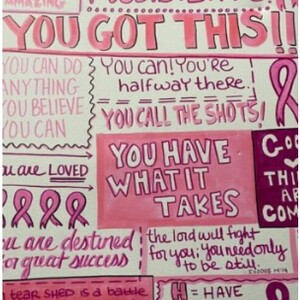 AMAZING
YOU GOT THIS!!
YOU CAN DO
ANYTHING
YOU BELIEVE
YOU CAN
You can! You're
halfway there..
YOU CALL THE SHOTS!
you are LOVED
YOU HAVE
WHAT IT
TAKES
THI
AR
COM
you are destined
for great success
the lord will fight
for you; you need only
to be still.
EXODUS 14:14
tear SHED is a battle
H = HAVE